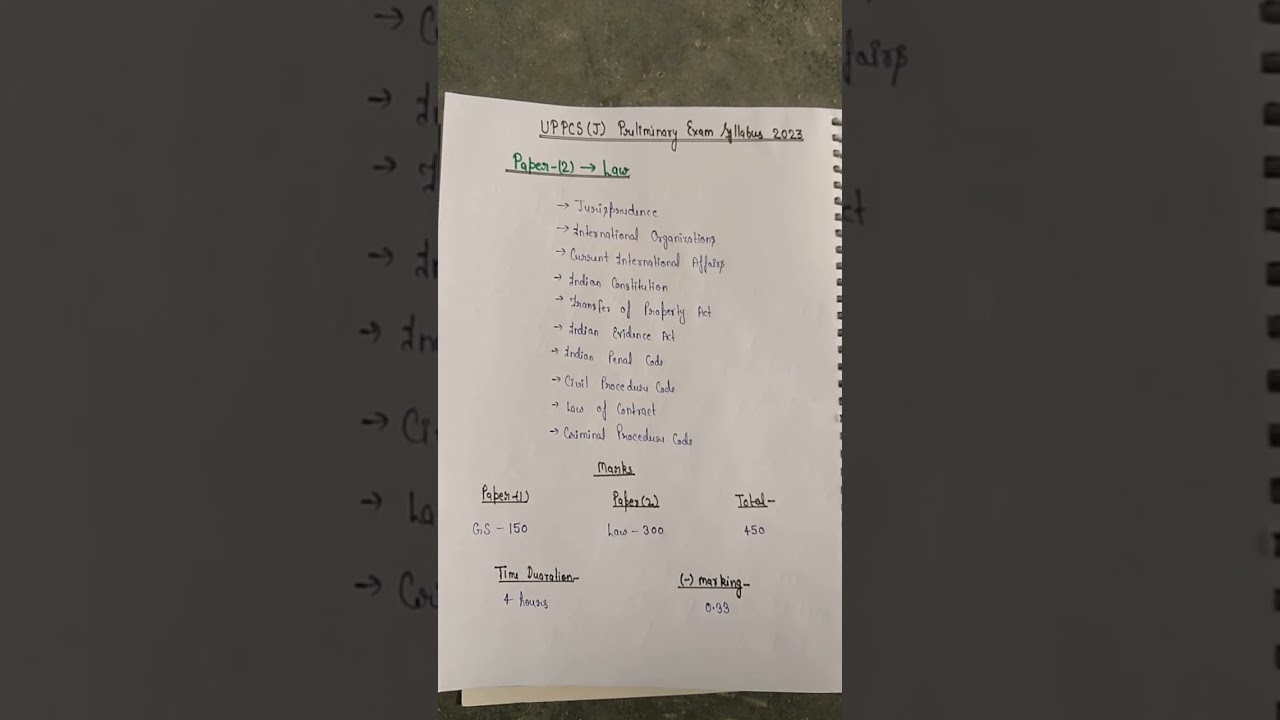 UPPCS(J) Preliminary Exam Syllabus 2023
Paper-(2) → Law
→ Jurisprudence
→ International Organizations
→ Current International Affairs
→ Indian Constitution
→ Transfer of Property Act
→ Indian Evidence Act
→ Indian Penal Code
→ Civil Procedure Code
→ Law of Contract
→ Criminal Procedure Code
Marks
Paper-(1) Paper(2) Total-
GS - 150 Law - 300 450
Time Duaration- (-) marking-
4 hours 0.33